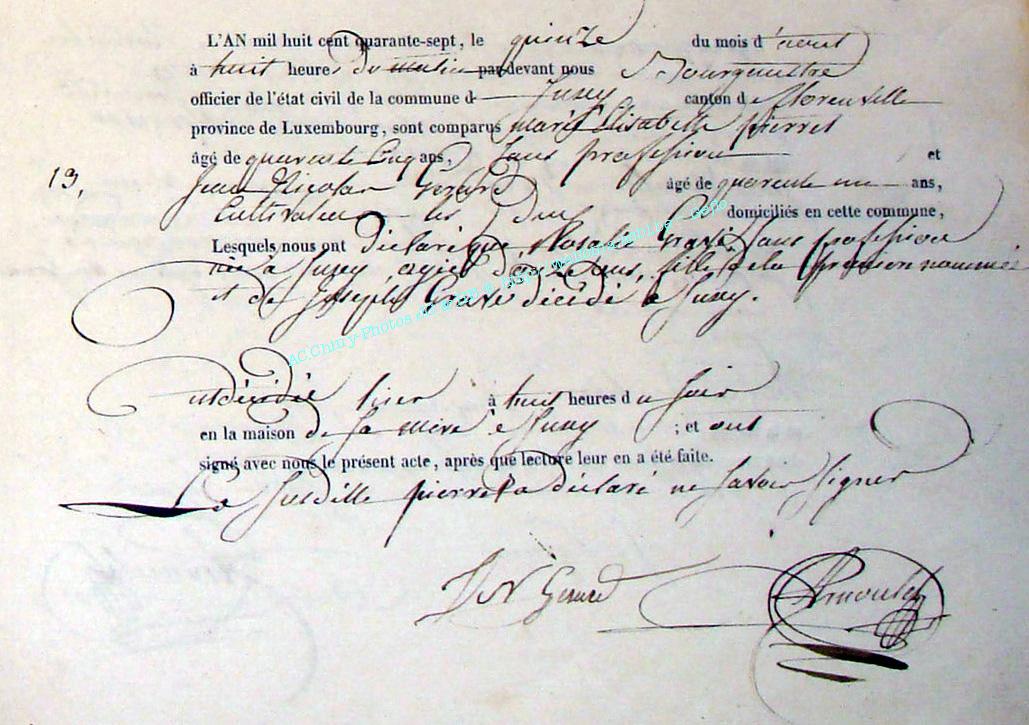 L'AN mil huit cent quarante-sept, le quinze du mois d'aout
à huit heures du matin pardevant nous Bourguemestre
officier de l'état civil de la commune d Suxy canton de florenville
province de Luxembourg, sont comparus marie Elisabelle pierret
âgé de quarente Cinq ans, Sans profession et
19, Jean Nicolas Gerard âgé de quarente un ans,
Cultivateur les deux domiciliés en cette commune,
Lesquels nous ont déclaré que Rosalie Graxe, Sans profession
née à Suxy agée d'onze ans, fille de la prenom nommée
et de Joseph Graxe décédé à Suxy.
AC.Chiny-Photos
est décédée hier à huit heures du soir
en la maison de sa mere à Suxy ; et ont
signé avec nous le présent acte, après que lecture leur en a été faite.
La Susditte pierret a déclaré ne Savoir Signer
J N Gerard Arnould